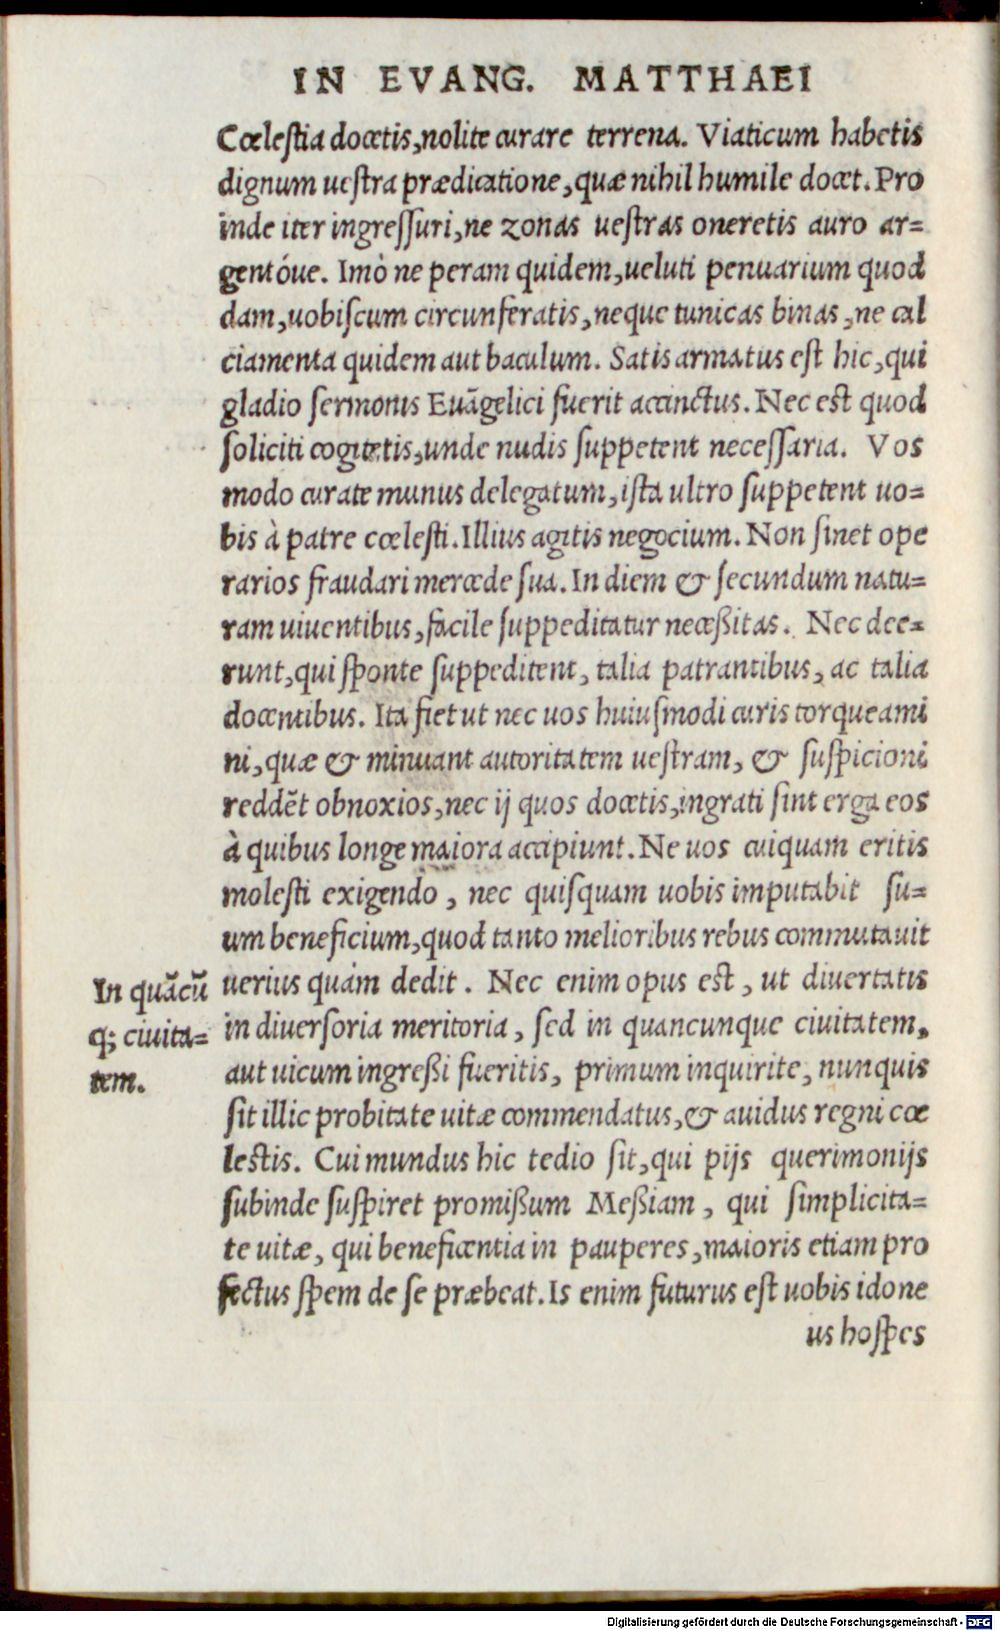 IN EVANG. MATTHAEI
Cœleſtia docetis, nolite curare terrena. Viaticum habetis
dignum ueſtra prædicatione, quæ nihil humile docet. Pro
inde iter ingreſſuri, ne zonas ueſtras oneretis auro ar=
gentóue. Imò ne peram quidem, ueluti penuarium quod
dam, uobiſcum circunferatis, neque tunicas binas, ne cal
ciamenta quidem aut baculum. Satis armatus eſt hic, qui
gladio ſermonis Euãgelici fuerit accinctus. Nec est quod
ſoliciti cogitetis, unde nudis ſuppetent neceſſaria. Vos
modo curate munus delegatum, iſta ultro ſuppetent uo=
bis à patre cœleſti. Illius agitis negocium. Non ſinet ope
rarios fraudari mercede ſua. In diem & ſecundum natu=
ram uiuentibus, facile ſuppeditatur neceßitas. Nec dee=
runt, qui ſponte ſuppeditent, talia patrantibus, ac talia
docentibus. Ita fiet ut nec uos huiuſmodi curis torqueami
ni, quæ & minuant autoritatem ueſtram, & ſuſpicioni
reddẽt obnoxios, nec ij quos docetis, ingrati ſint erga eos
à quibus longe maiora accipiunt. Ne uos cuiquam eritis
moleſti exigendo, nec quiſquam uobis imputabit ſu=
um beneficium, quod tanto melioribus rebus commutauit
uerius quàm dedit. Nec enim opus est, ut diuertatis
in diuerſoria meritoria, ſed in quancunque ciuitatem,
aut uicum ingreßi fueritis, primum inquirite, nunquis
ſit illic probitate uitæ commendatus, & auidus regni cœ
lestis. Cui mundus hic tedio ſit, qui pijs querimonijs
ſubinde ſuſpiret promißum Meßiam, qui ſimplicita=
te uitæ, qui beneficentia in pauperes, maioris etiam pro
fectus ſpem de ſe præbeat. Is enim futurus eſt uobis idone
us hoſpes
In quãcũ
q; ciuita=
tem.
Digitalisierung gefördert durch die Deutsche Forschungsgemeinschaft - DFG